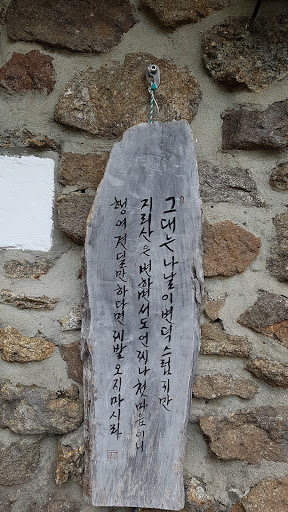 그대는 나날이 변덕스럽지만
지리산은 변하면서도 언제나 첫 마음이니
행여 견딜만 하다면 제발 오지 마시라